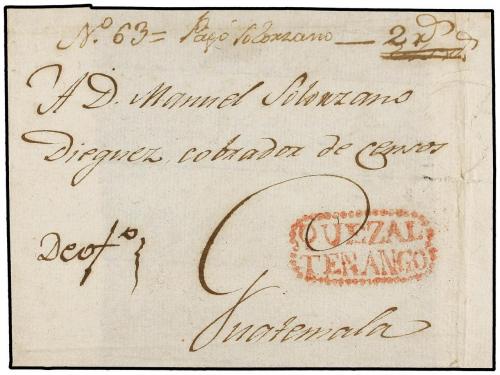 Nº 63= Pagó Solorzano — 2 rˢ
A D. Manuel Solorzano
Dieguez, cobrador de censos
De ofº
QUEZAL
TENANGO
Guatemala